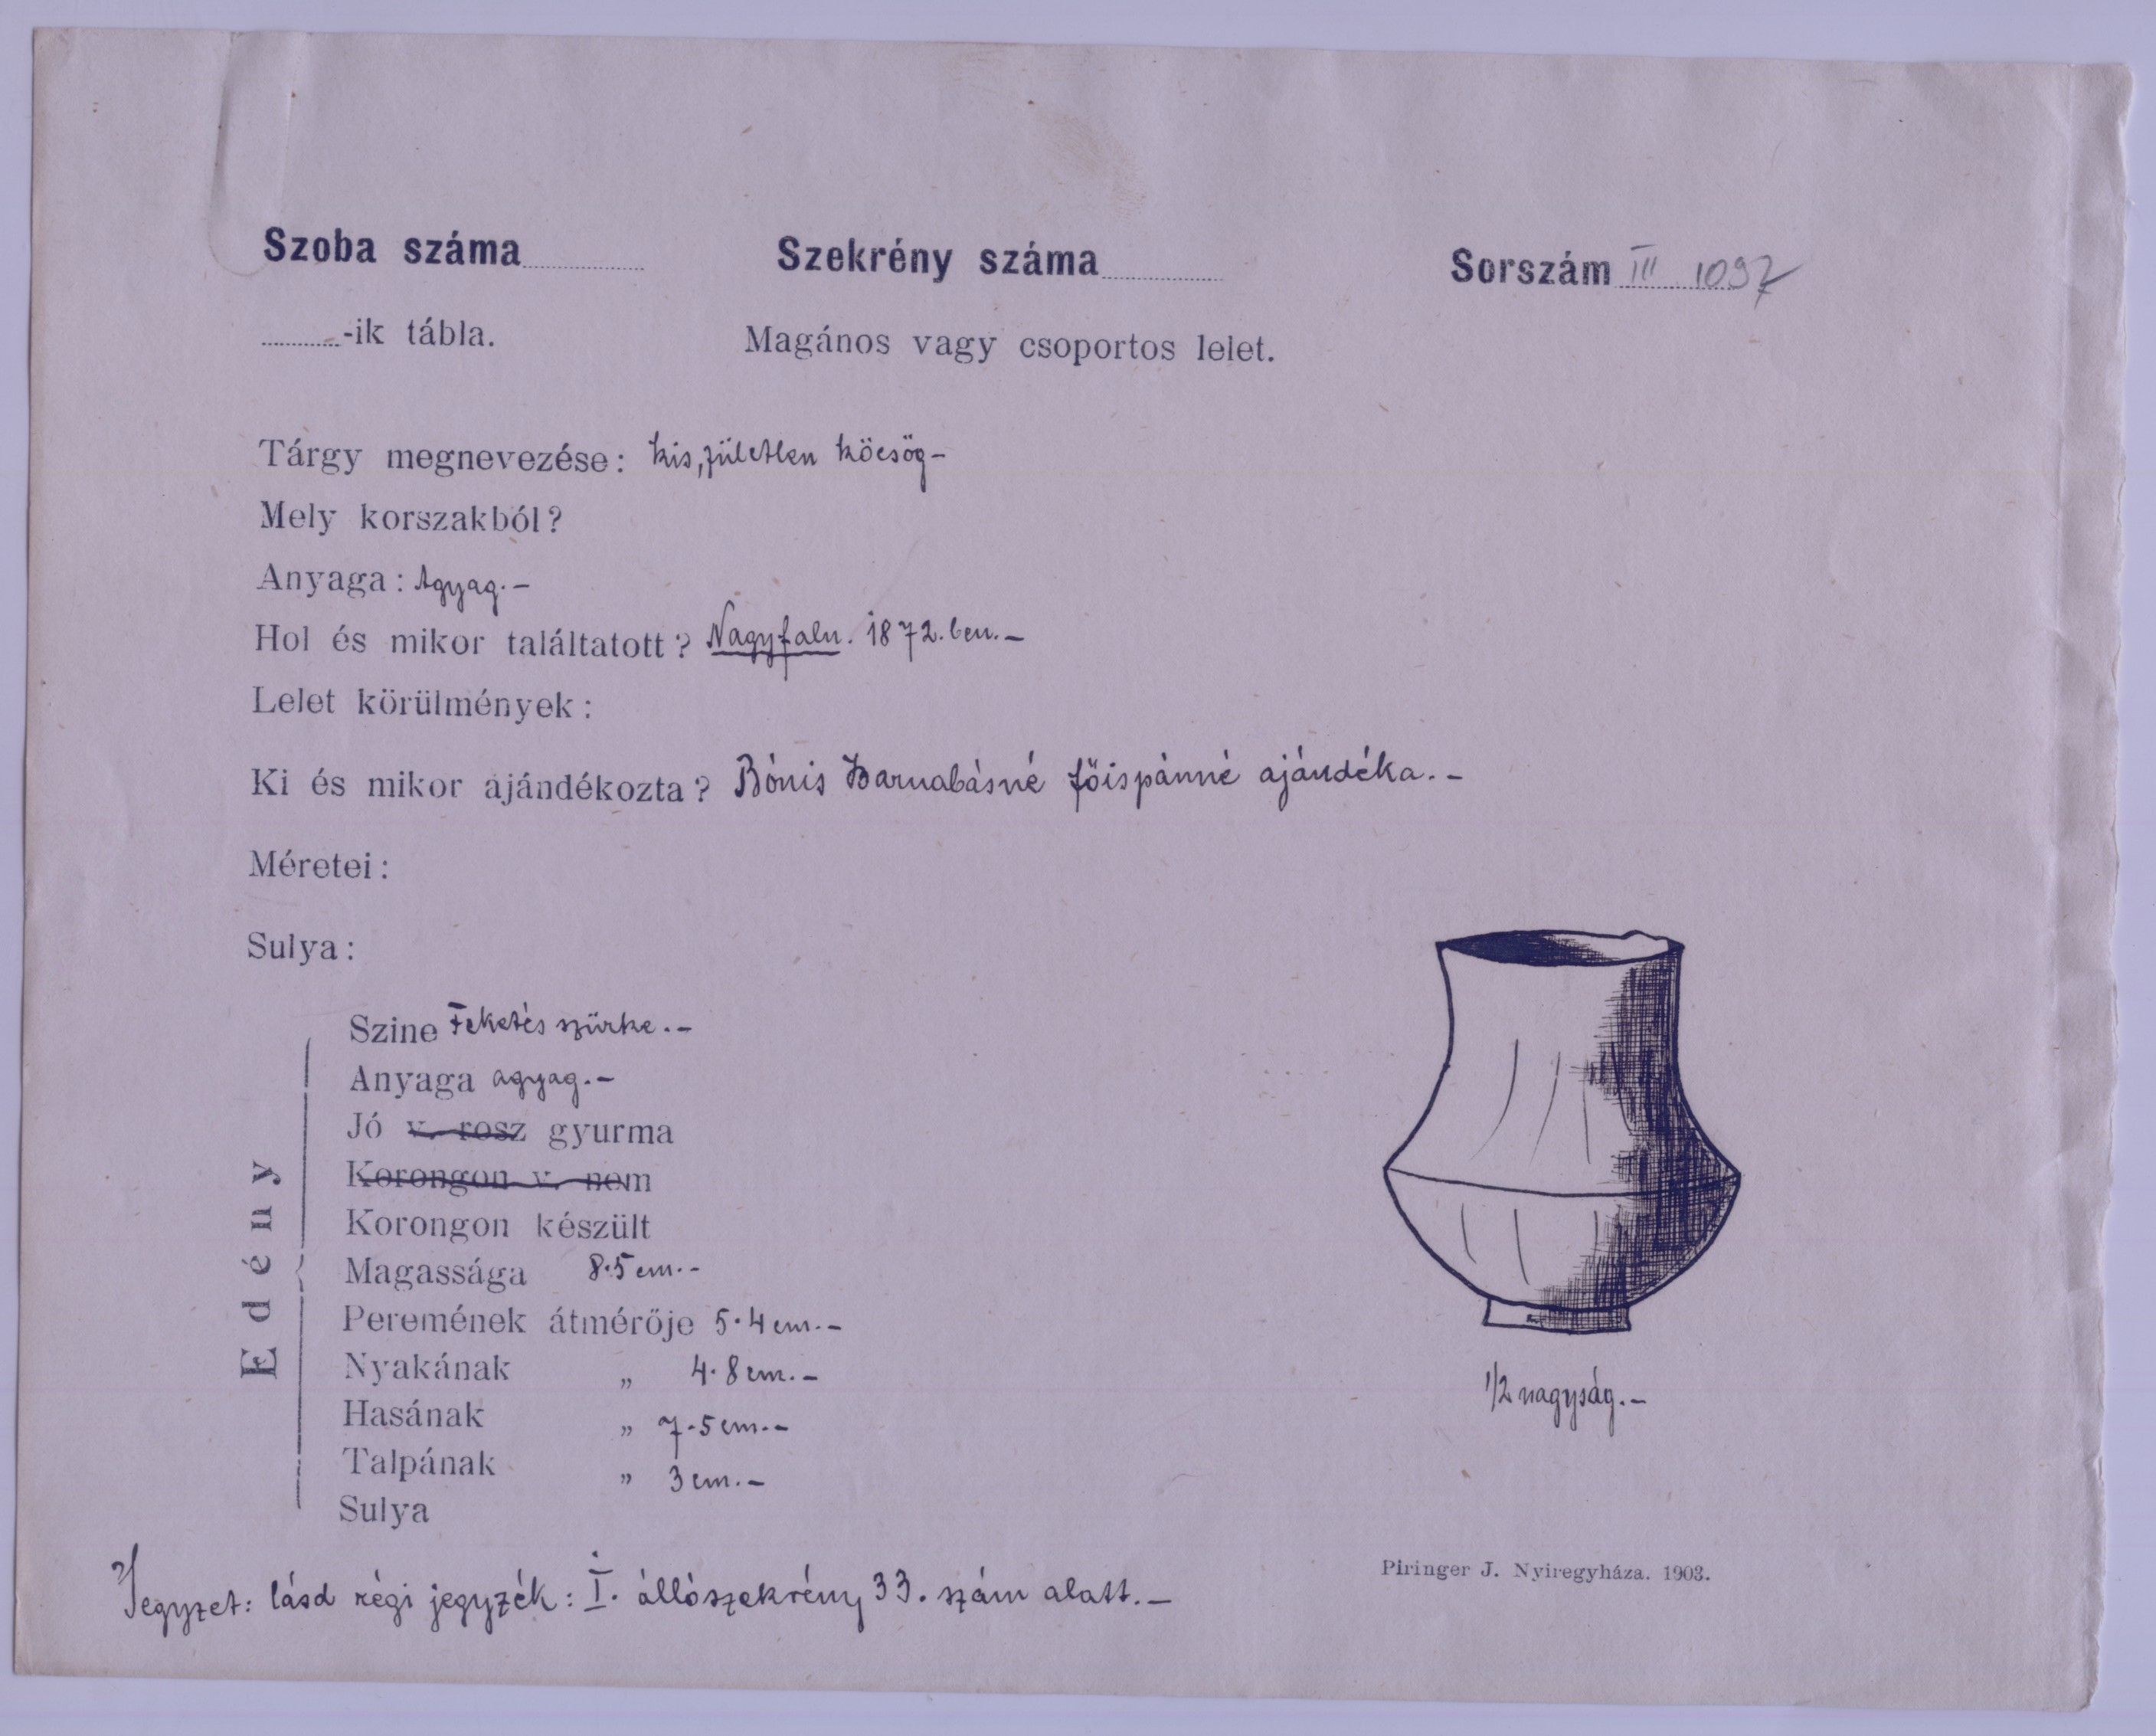 Szoba száma Szekrény száma Sorszám III 1097
-ik tábla. Magános vagy csoportos lelet.
Tárgy megnevezése: kis, fületlen köcsög-
Mely korszakból?
Anyaga: Agyag.-
Hol és mikor találtatott? Nagyfalu. 1872.ben.-
Lelet körülmények:
Ki és mikor ajándékozta? Bónis Barnabásné főispánné ajándéka.-
Méretei:
Sulya:
Edény
Szine Feketés szürke.-
Anyaga agyag.-
Jó v. rosz gyurma
Korongon v. nem
Korongon készült
Magassága 8.5 cm.-
Peremének átmérője 5.4 cm.-
Nyakának „ 4.8 cm.-
Hasának „ 7.5 cm.-
Talpának „ 3 cm.-
Sulya
1/2 nagyság.-
Jegyzet: lásd régi jegyzék: I. állószekrény 33. szám alatt.-
Piringer J. Nyiregyháza. 1903.